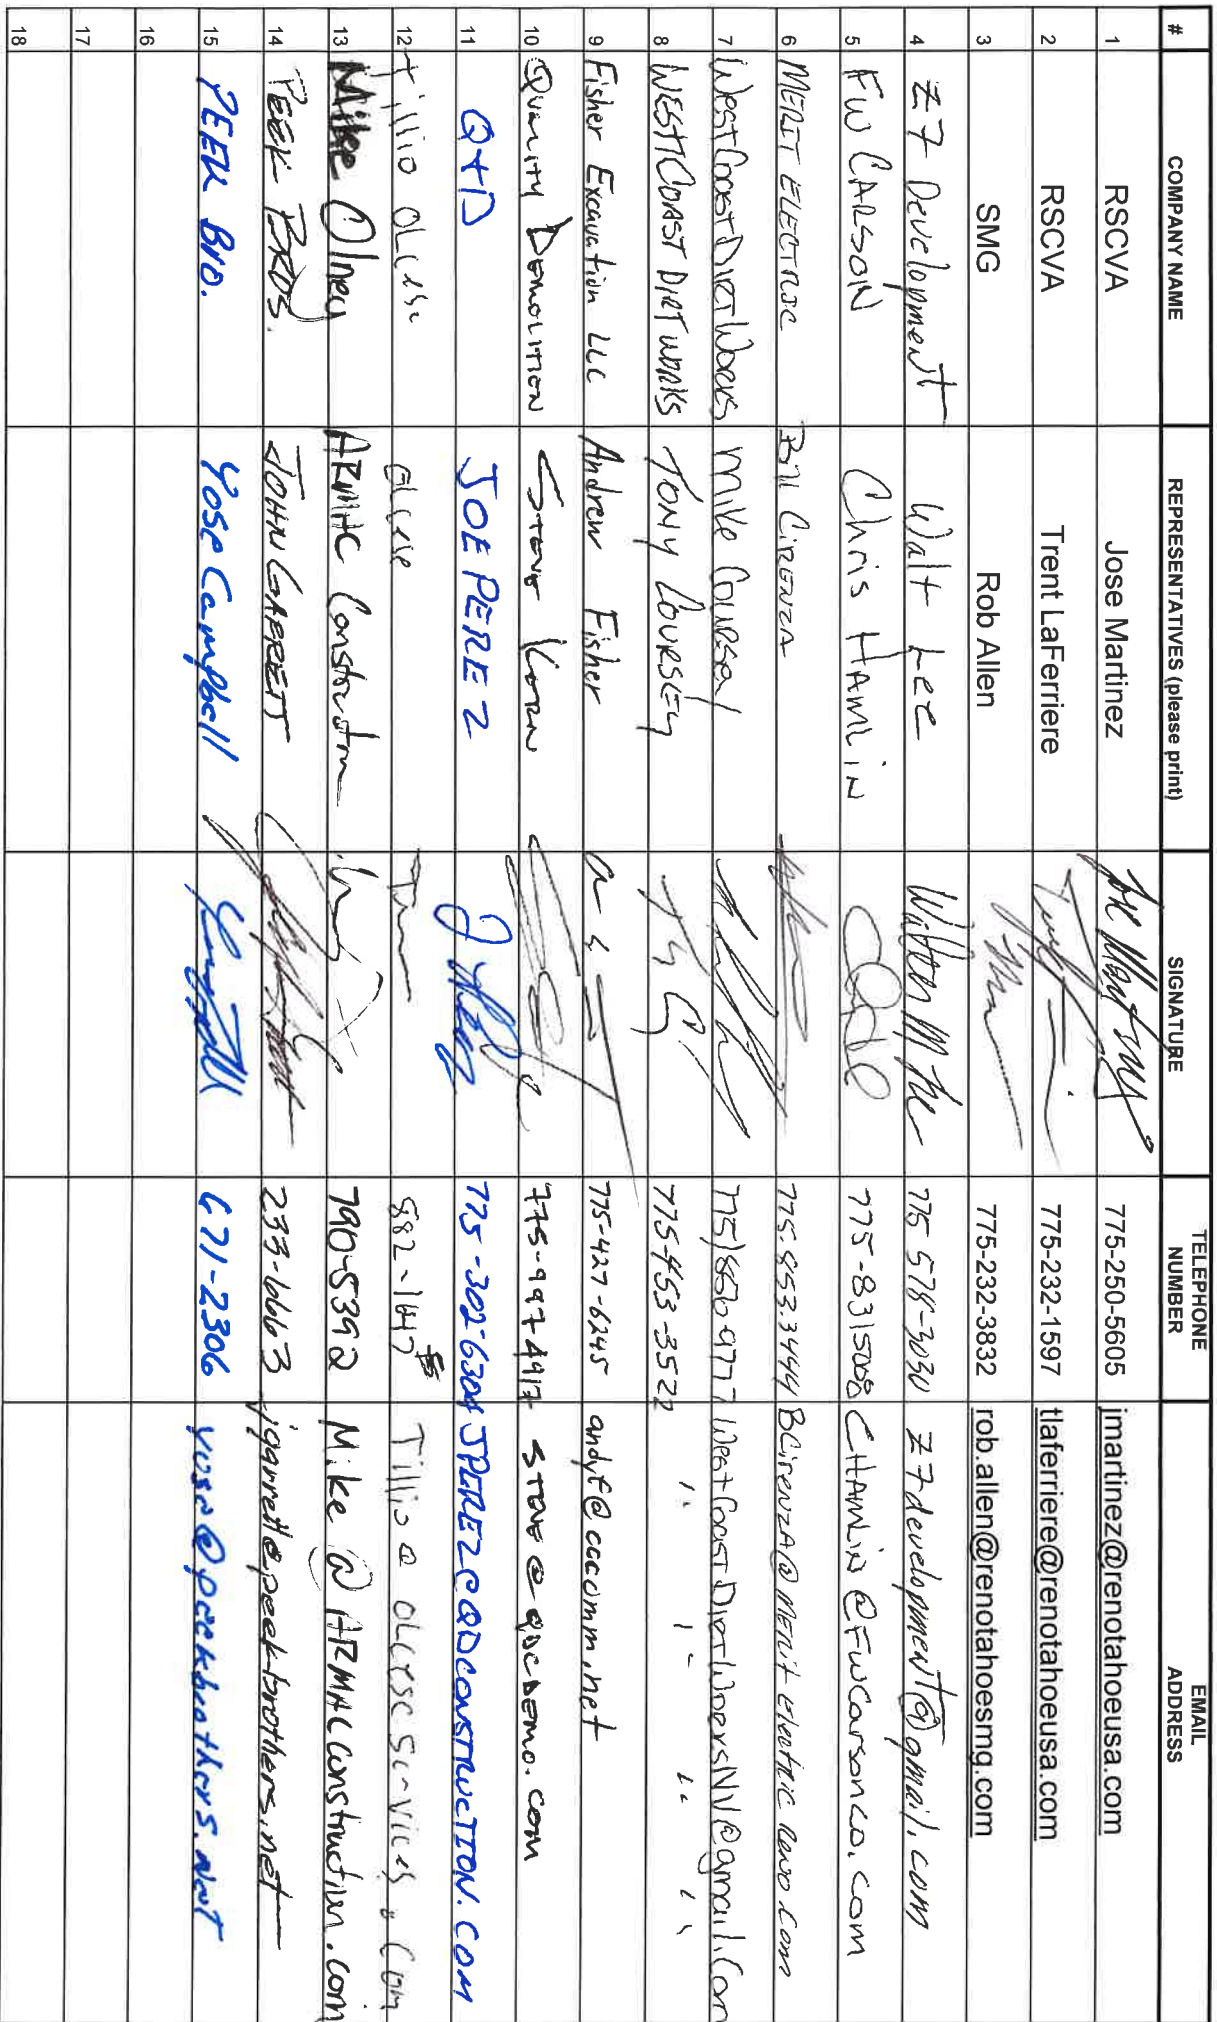 # COMPANY NAME REPRESENTATIVES (please print) SIGNATURE TELEPHONE NUMBER EMAIL ADDRESS
1 RSCVA Jose Martinez 775-250-5605 jmartinez@renotahoeusa.com
2 RSCVA Trent LaFerriere 775-232-1597 tlaferriere@renotahoeusa.com
3 SMG Rob Allen 775-232-3832 rob.allen@renotahoesmg.com
4 Z7 Development Walt Lee 775-578-3030 Z7development@gmail.com
5 FW CARSON Chris HAMLIN 775-8315008 CHAMLIN@FWCarsonco.com
6 MERIT ELECTRIC Bill CIRENZA 775.853.3444 BCirenzA@merit electric reno.com
7 WestCoastDirtWorks Mike Coursey 775)8509777 WestCoastDirtWorksNV@gmail.com
8 WEST COAST DIRT WORKS TONY COURSEY 775-453-3522 " " " "
9 Fisher Excavation LLC Andrew Fisher 775-427-6245 andyf@cccomm.net
10 Quality Demolition Steve Korn 775-997-4917 STEVE@QDCDEMO.COM
11 Q+D JOE PEREZ 775-302-6304 JPEREZ@QDCONSTRUCTION.COM
12 Tillio OLcese Olcese 882-1447 Tillio@olcese services.com
13 Mike Olney ARMAC Construction 790-5392 Mike@ARMACConstruction.com
14 PEEK BROS. JOHN GARRETT 233-6663 jgarrett@peekbrothers.net
15 PEEK BRO. Yose Campbell 671-2306 yose@peekbrothers.net
16
17
18